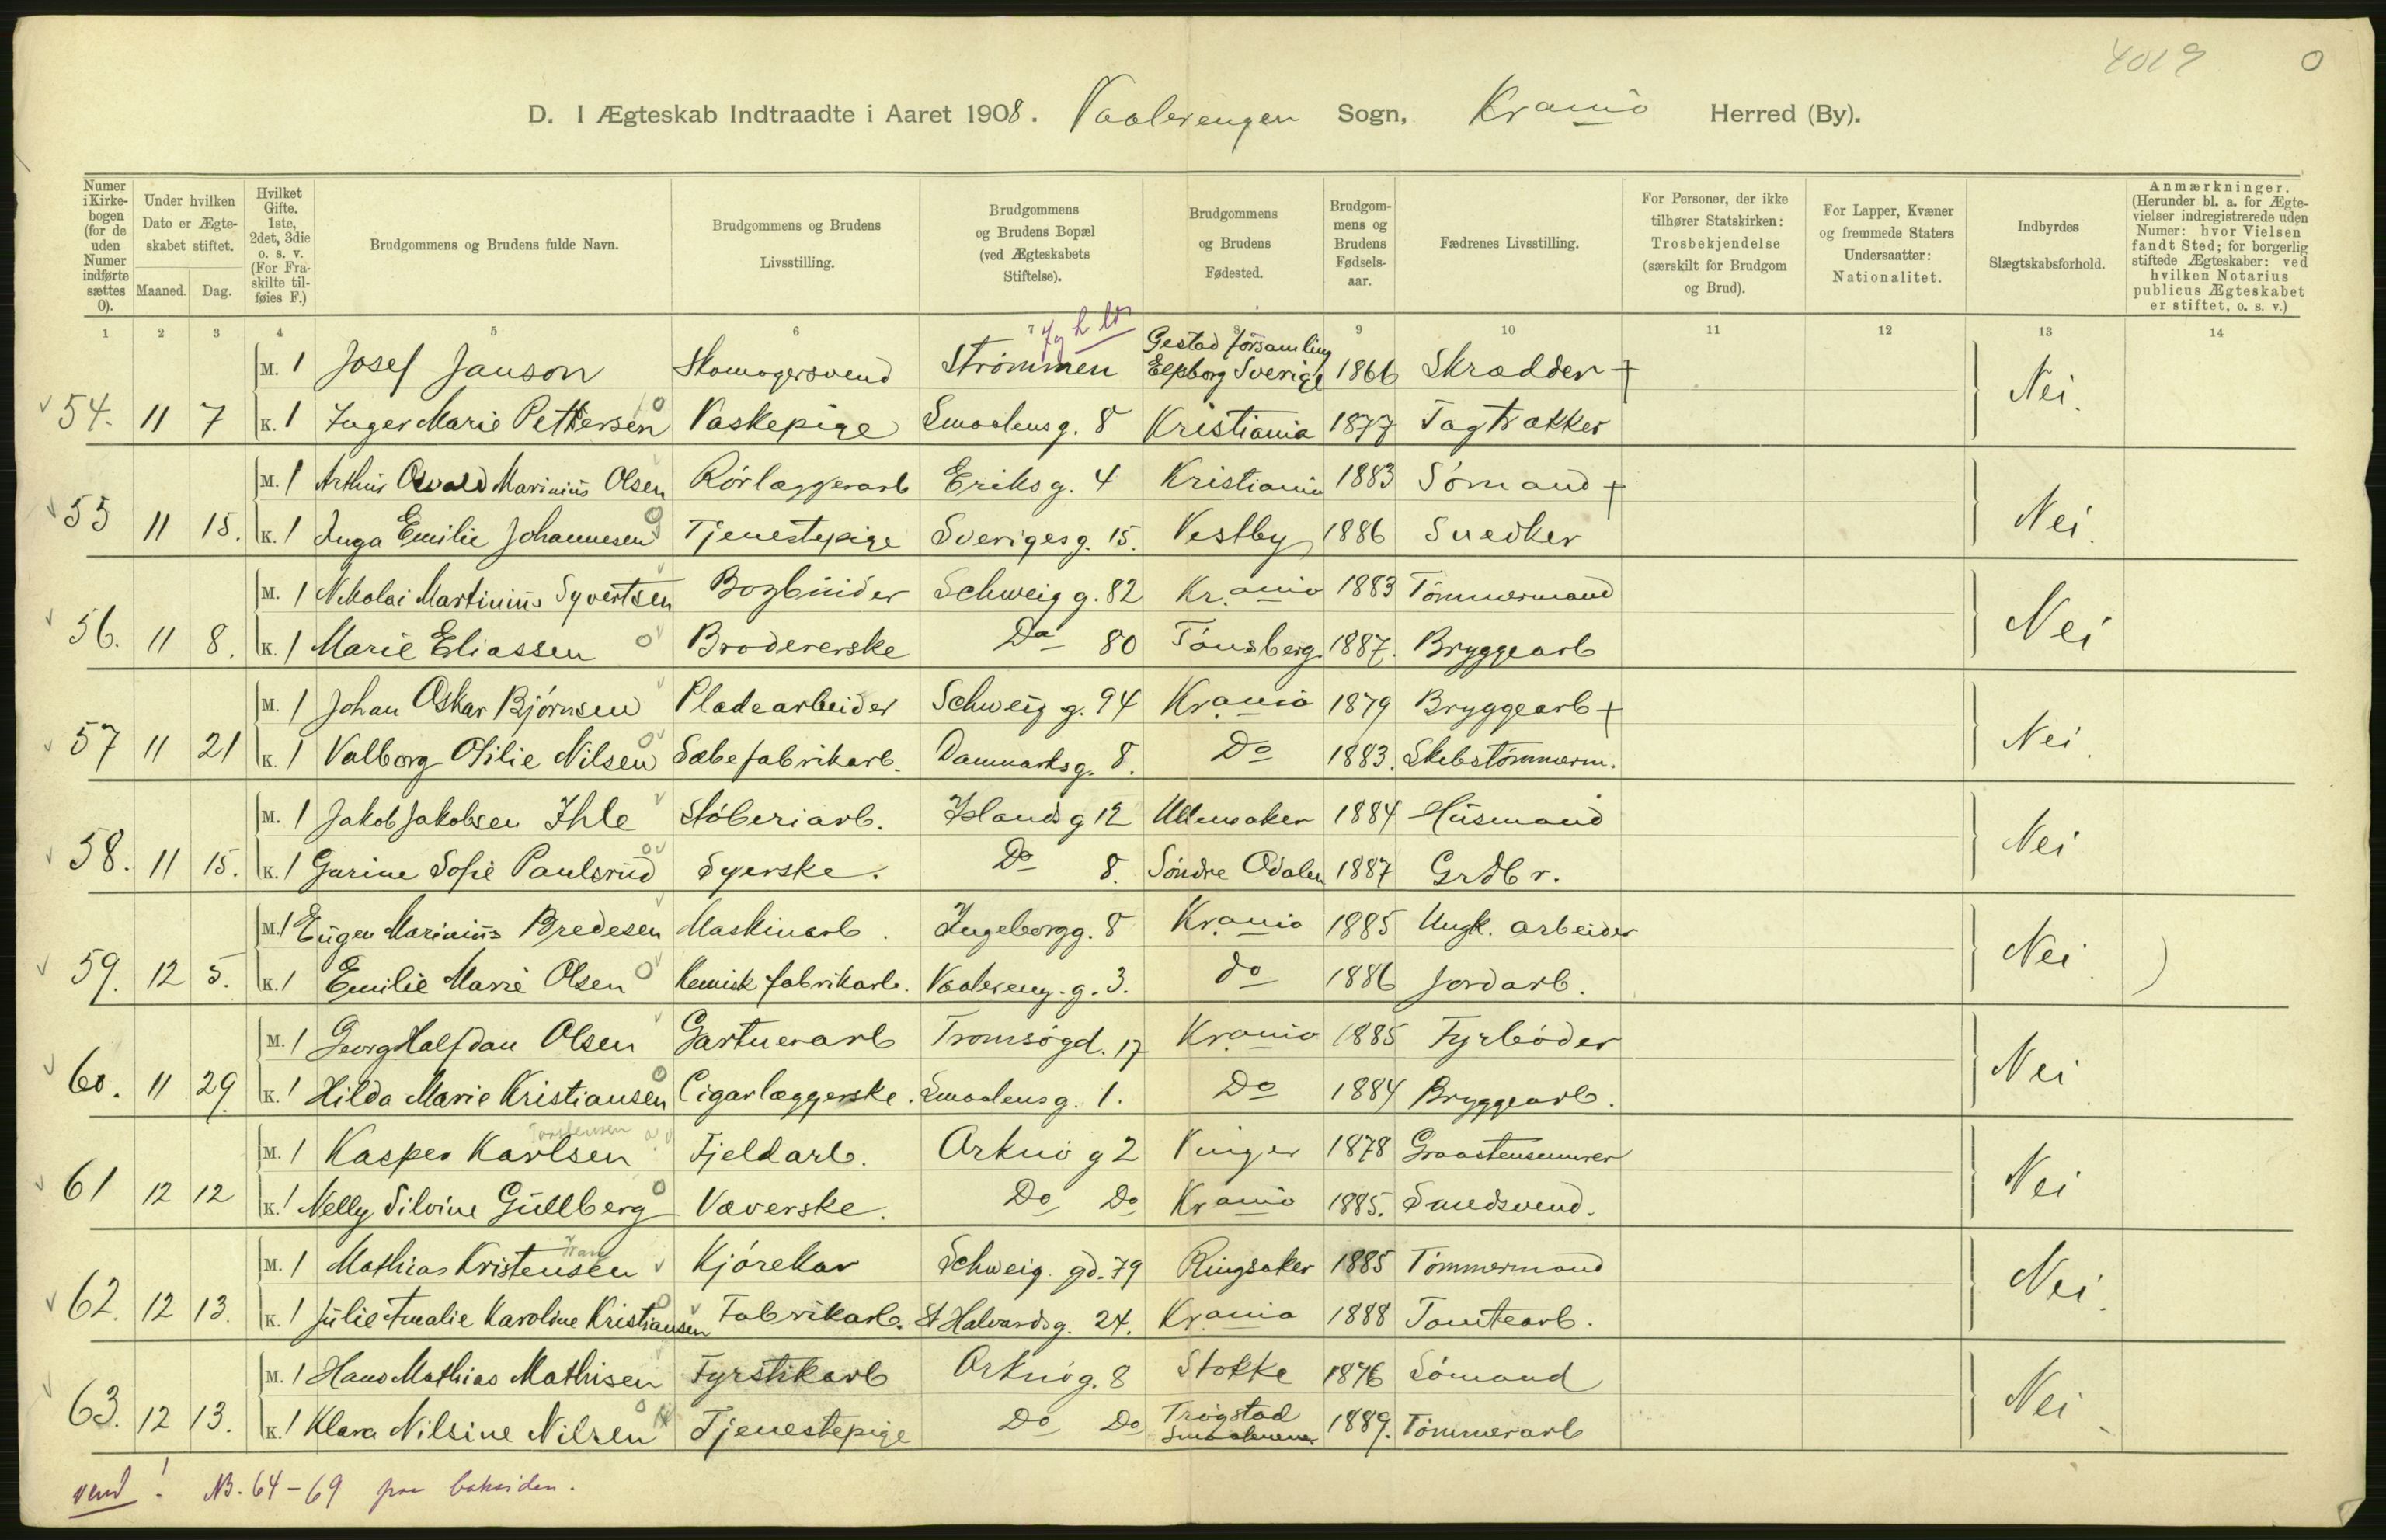 4019 0
D. I Ægteskab Indtraadte i Aaret 1908. Vaalerengen Sogn, Krania Herred (By).
Numer i Kirkebogen (for de uden Numer indførte sættes 0). Under hvilken Dato er Ægteskabet stiftet. Maaned. Dag. Hvilket Gifte. 1ste, 2det, 3die o. s. v. (For Fraskilte tilføies F.) Brudgommens og Brudens fulde Navn. Brudgommens og Brudens Livsstilling. Brudgommens og Brudens Bopæl (ved Ægteskabets Stiftelse). Brudgommens og Brudens Fødested. Brudgommens og Brudens Fødselsaar. Fædrenes Livsstilling. For Personer, der ikke tilhører Statskirken: Trosbekjendelse (særskilt for Brudgom og Brud). For Lapper, Kvæner og fremmede Staters Undersaatter: Nationalitet. Indbyrdes Slægtskabsforhold. Anmærkninger. (Herunder bl. a. for Ægtevielser indregistrerede uden Numer: hvor Vielsen fandt Sted; for borgerlig stiftede Ægteskaber: ved hvilken Notarius publicus Ægteskabet er stiftet, o. s. v.)
1 2 3 4 5 6 7 8 9 10 11 12 13 14
M. 1 Josef Janson Skomagersvend Strømmen Gestad församling Elfsborg Sverige 1866 Skrædder + Nei.
54. 11 7 K. 1 Inger Marie Pettersen Vaskepige Smaalensg. 8 Kristiania 1877 Tagtækker
M. 1 Arthur Osvald Marinius Olsen Rørlæggerarb Eriksg. 4 Kristiania 1883 Sømand + Nei.
55 11 15. K. 1 Inga Emilie Johannesen Tjenestepige Sverigesg. 15. Vestby 1886 Snedker
M. 1 Nikolai Martinius Syvertsen Bogbinder Schweig g. 82 Kr.ania 1883 Tømmermand Nei
56. 11 8. K. 1 Marie Eliassen Brodererske Do 80 Tønsberg 1887. Bryggearb
M. 1 Johan Oskar Bjørnsen Pladearbeider Schweig g. 94 Krania 1879 Bryggearb + Nei.
57 11 21 K. 1 Valborg Otilie Nilsen Sæbefabrikarb. Danmarksg. 8. Do 1883. Skibstømmerm.
M. 1 Jakob Jakobsen Ihle Støberiarb. Islandsg 12 Ullensaker 1884 Husmand Nei
58. 11 15. K. 1 Garine Sofie Paulsrud Syerske. Do 8. Søndre Odalen 1887 Grdbr.
M. 1 Eugen Marinius Bredesen Maskinarb. Ingeborgg. 8 Krania 1885 Ungk. arbeider Nei
59. 12 5. K. 1 Emilie Marie Olsen Kemisk fabrikarb. Vaalereng. g. 3. do 1886 Jordarb.
M. 1 Georg Halfdan Olsen Gartnerarb Tromsøgd. 17 Krania 1885 Fyrbøder Nei
60. 11 29. K. 1 Hilda Marie Kristiansen Cigarlæggerske. Smaalensg. 1. Do 1884 Bryggearb.
Torstensen
M. 1 Kasper Karlsen Fjeldarb. Orknø g 2 Vinger 1878 Graastensmurer Nei
61 12 12 K. 1 Nelly Silvine Gullberg Væverske. Do Do Krania 1885. Smedsvend.
M. 1 Mathias Kristensen Kjørekar Schweig. gd. 79 Ringsaker 1885 Tømmermand Nei.
62. 12 13. K. 1 Julie Amalie Karoline Kristiansen Fabrikarb. St Halvardsg. 24. Krania 1888 Tomtearb.
M. 1 Hans Mathias Mathisen Fyrstikarb Orknøg. 8 Stokke 1876 Sømand Nei
63. 12 13. K. 1 Klara Nilsine Nilsen Tjenestepige Do Do Trøgstad Smaalenene 1889. Tømmerarb
vend! NB. 64-69 paa baksiden.